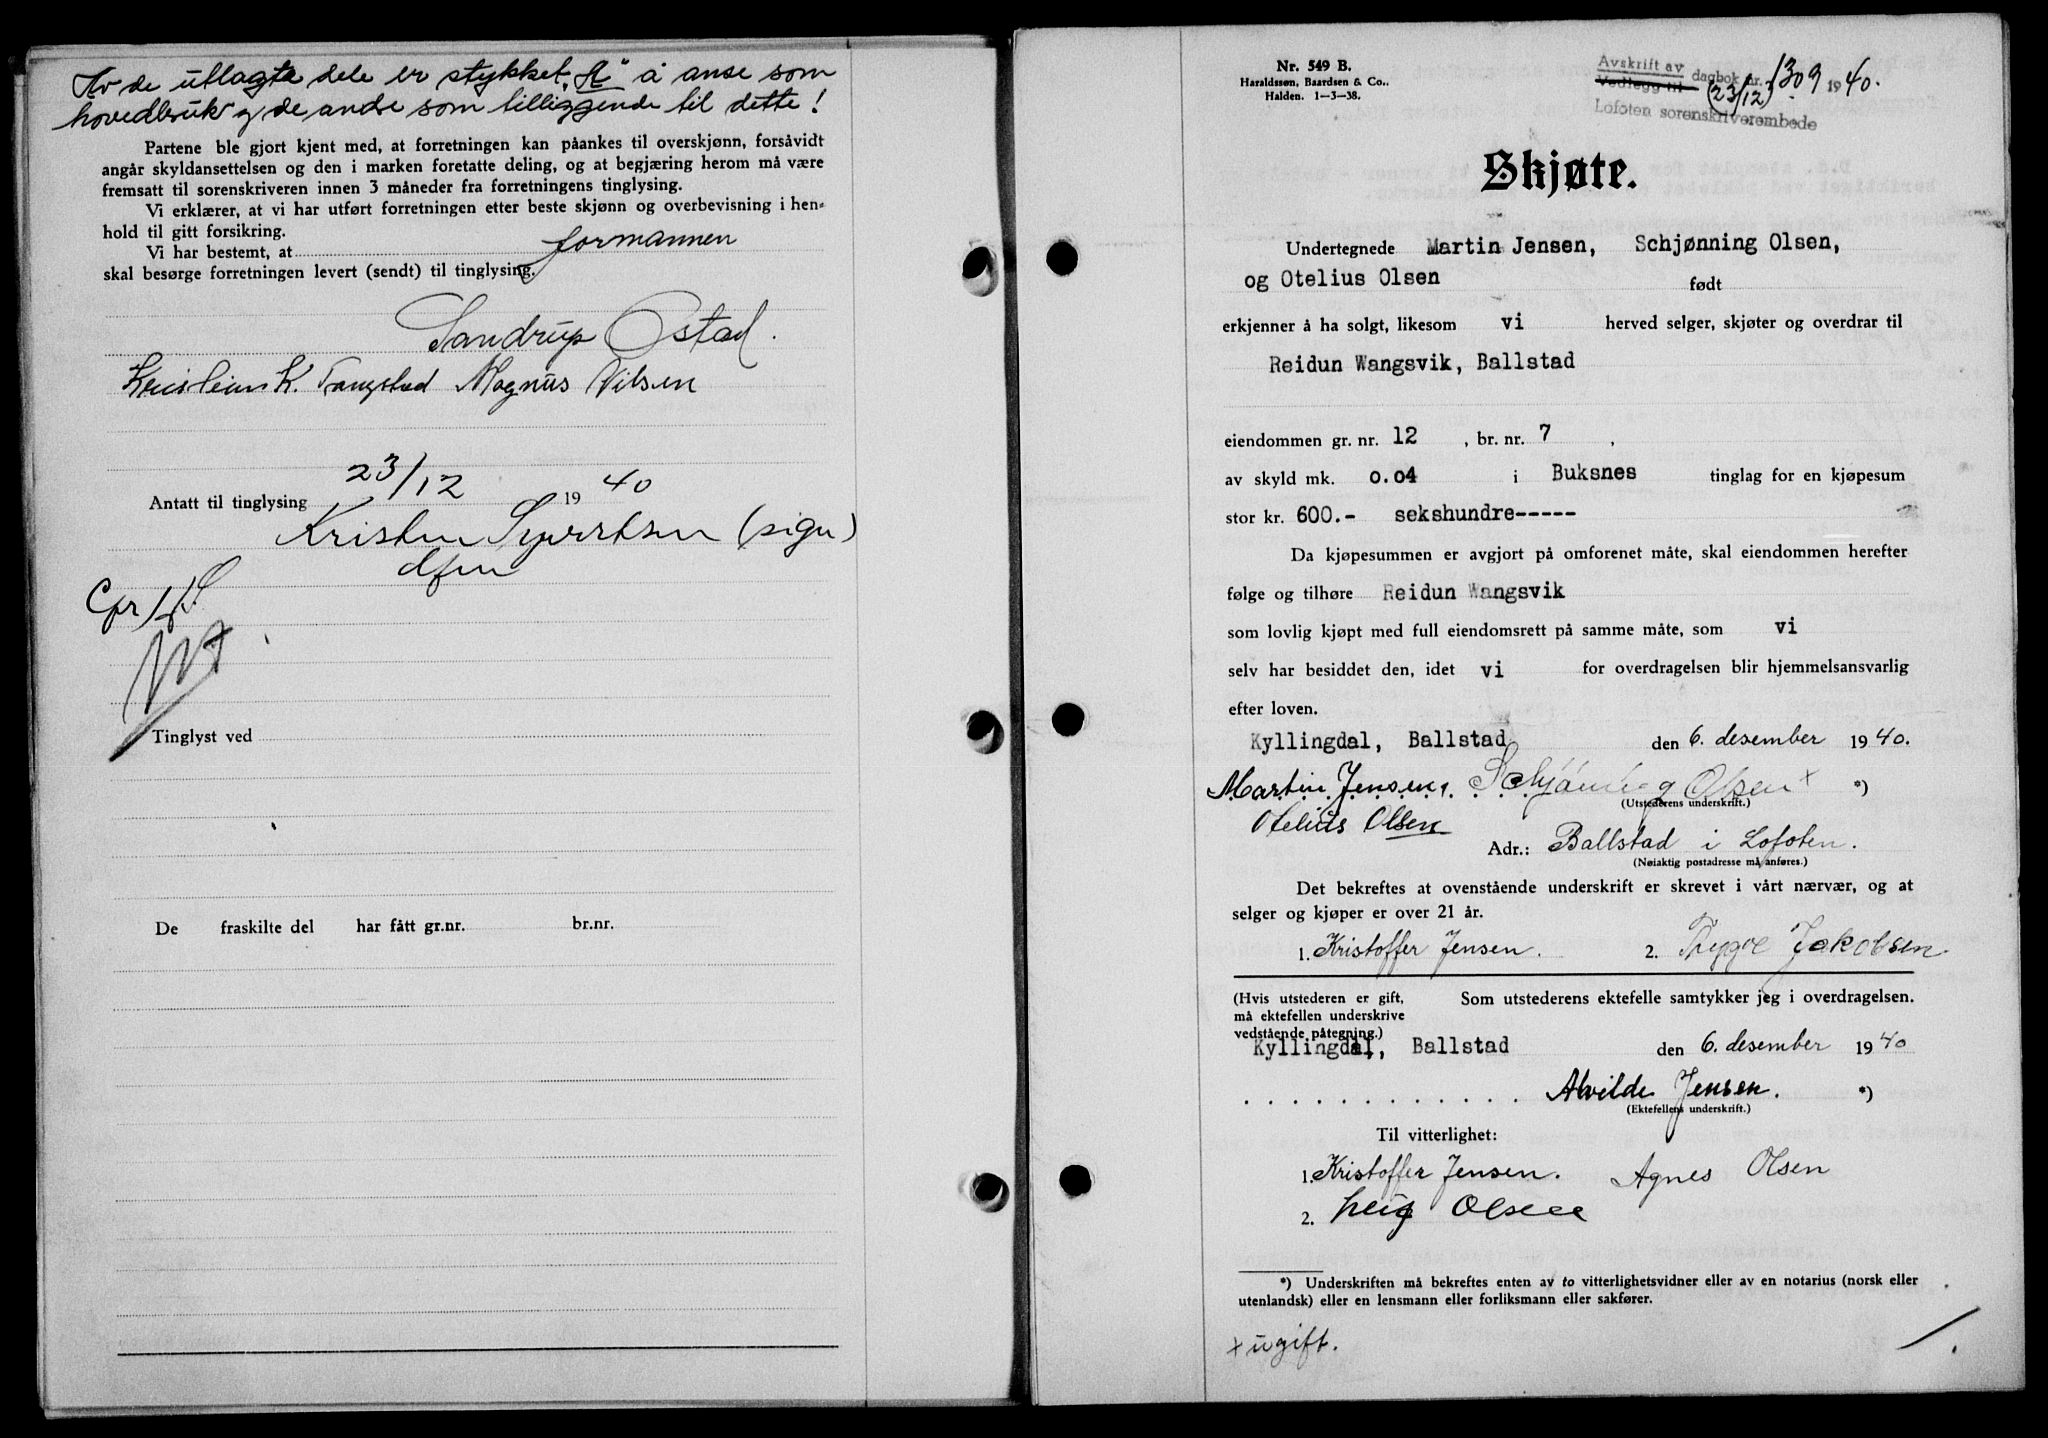 Av de utlagte dele er stykket „A" å anse som
hovedbruk og de andre som tilliggende til dette!
Partene ble gjort kjent med, at forretningen kan påankes til overskjønn, forsåvidt
angår skyldansettelsen og den i marken foretatte deling, og at begjæring herom må være
fremsatt til sorenskriveren innen 3 måneder fra forretningens tinglysing.
Vi erklærer, at vi har utført forretningen etter beste skjønn og overbevisning i hen-
hold til gitt forsikring.
Vi har bestemt, at formannen
skal besørge forretningen levert (sendt) til tinglysing.
Sandrup Ostad.
K. Tangstad Magnus Nilsen
Antatt til tinglysing 23/12 1940
(sign)
Cfr
Tinglyst ved
De fraskilte del har fått gr.nr. br.nr.
Nr. 549 B.
Haraldssøn, Baardsen & Co..
Halden. 1-3-38.
Avskrift av
Vedlegg til dagbok nr. 1309 1940.
(23/12)
Lofoten sorenskriverembede
Skjøte.
Undertegnede Martin Jensen, Schjønning Olsen,
og Otelius Olsen født
erkjenner å ha solgt, likesom vi herved selger, skjøter og overdrar til
Reidun Wangsvik, Ballstad
eiendommen gr. nr. 12 , br. nr. 7 ,
av skyld mk. 0.04 i Buksnes tinglag for en kjøpesum
stor kr. 600.- sekshundre-----
Da kjøpesummen er avgjort på omforenet måte, skal eiendommen herefter
følge og tilhøre Reidun Wangsvik
som lovlig kjøpt med full eiendomsrett på samme måte, som vi
selv har besiddet den, idet vi for overdragelsen blir hjemmelsansvarlig
efter loven.
Kyllingdal, Ballstad den 6. desember 1940.
Martin Jensen, Schjønning Olsen x *)
(Utstederens underskrift.)
Otelius Olsen
Adr.: Ballstad i Lofoten.
(Nøiaktig postadresse må anføres.)
Det bekreftes at ovenstående underskrift er skrevet i vårt nærvær, og at
selger og kjøper er over 21 år.
1. Kristoffer Jensen. 2. Trygve Jakobsen.
(Hvis utstederen er gift, Som utstederens ektefelle samtykker jeg i overdragelsen.
må ektefellen underskrive
vedstående påtegning.)
Kyllingdal, Ballstad den 6. desember 1940
Alvilde Jensen. *)
(Ektefellens underskrift.)
Til vitterlighet:
1. Kristoffer Jensen. Agnes Olsen
2. Leif Olsen
*) Underskriften må bekreftes enten av to vitterlighetsvidner eller av en notarius (norsk eller
utenlandsk) eller en lensmann eller forliksmann eller sakfører.
x ugift.